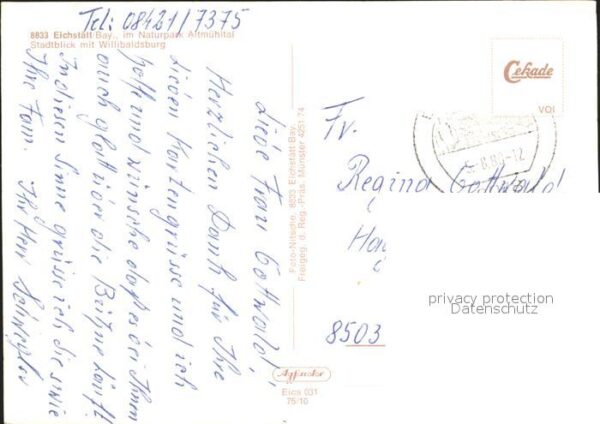 Tel: 08421/7375
8833 Eichstätt Bay., im Naturpark Altmühltal
Stadtblick mit Willibaldsburg
Liebe Frau Gottwald,
Herzlichen Dank für Ihre
lieben Kartengrüsse und ich
hoffe und wünsche daß es bei Ihnen
auch glatt über die Bühne läuft!
In diesem Sinne grüsse ich die sowie
Ihre Fam. Ihr Herr
Foto-Nitsche, 8833 Eichstätt Bay.
Freigeg. d. Reg.-Präs. Münster 4251/74
Eics 031
75/10
Cekade
VOI
5.8.80-12
Fr.
Regina Gottwald
8503
privacy protection
Datenschutz